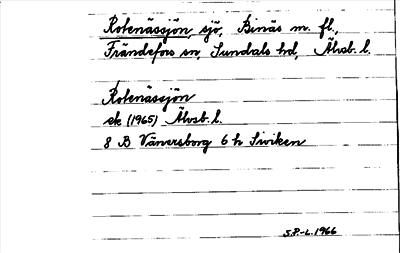 Rotenässjön sjö, Binäs m. fl.,
Frändefors sn, Sundals hd, Älvsb. l.
Rotenässjön
ek (1965) Älvsb. l.
8 B Vänersborg 6 h Siviken
S.P.-L. 1966